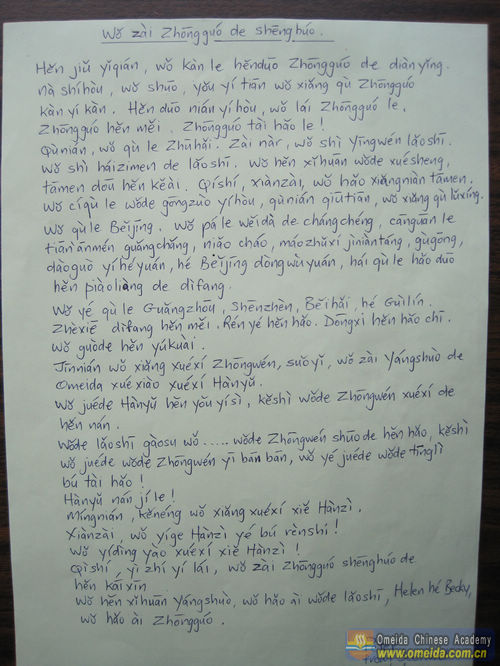 Wǒ zài Zhōngguó de shēnghuó.
Hěn jiǔ yǐqián, wǒ kàn le hěnduō Zhōngguó de diànyǐng.
nà shíhòu, wǒ shuō, yǒu yí tiān wǒ xiǎng qù Zhōngguó
kàn yí kàn. Hěn duō nián yǐhòu, wǒ lái Zhōngguó le.
Zhōngguó hěn měi. Zhōngguó tài hǎo le!
Qùnián, wǒ qù le Zhūhǎi. Zài nàr, wǒ shì Yīngwén lǎoshī.
Wǒ shì háizimen de lǎoshī. Wǒ hěn xǐhuān wǒde xuéshēng,
tāmen dōu hěn kěài. Qíshí, xiànzài, wǒ hǎo xiǎngniàn tāmen.
Wǒ cíqù le wǒde gōngzuò yǐhòu, qùnián qiūtiān, wǒ xiǎng qù lǚxíng.
Wǒ qù le Běijīng. Wǒ pá le wěidà de chángchéng, cānguān le
tiān'ānmén guángchǎng, niǎo cháo, máozhǔxí jìniàntáng, gùgōng,
dàoguò yíhéyuán, hé Běijīng dòngwùyuán, hái qù le hǎo duō
hěn piàoliàng de dìfang.
Wǒ yě qù le Guǎngzhōu, Shēnzhèn, Běihǎi, hé Guìlín.
Zhèxiē dìfang hěn měi. Rén yě hěn hǎo. Dōngxi hěn hǎo chī.
Wǒ guòde hěn yúkuài.
Jīnnián wǒ xiǎng xuéxí Zhōngwén, suǒyǐ, wǒ zài Yángshuò de
Omeida xuéxiào xuéxí Hànyǔ.
Wǒ juéde Hànyǔ hěn yǒu yìsi, kěshì wǒde Zhōngwén xuéxí de
hěn nán.
Wǒde lǎoshī gàosu wǒ ..... wǒde Zhōngwén shuō de hěn hǎo, kěshì
wǒ juéde wǒde Zhōngwén yī bān bān, wǒ yě juéde wǒde tīnglì
bú tài hǎo!
Hànyǔ nán jí le!
Míngnián, kěnéng wǒ xiǎng xuéxí xiě Hànzì.
Xiànzài, wǒ yíge Hànzì yě bú rènshi!
Wǒ yídìng yào xuéxí xiě Hànzì!
Qíshí, yì zhí yǐ lái, wǒ zài Zhōngguó shenghuó de
hěn kāixīn
Wǒ hěn xǐhuān Yángshuò, wǒ hǎo ài wǒde lǎoshī, Helen hé Becky,
wǒ hǎo ài Zhōngguó.
Omeida Chinese Academy
www.omeida.com.cn